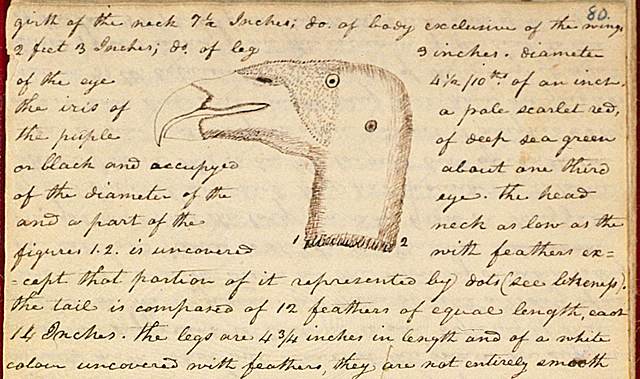 80.
girth of the neck 7½ Inches; do. of body exclusive of the wings
2 feet 3 Inches; do. of leg 3 inches. diameter
of the eye 4½/10ths of an inch,
the iris of a pale scarlet red,
the puple of deep sea green
or black and occupyed about one third
of the diameter of the eye. the head
and a part of the neck as low as the
figures 1.2. is uncovered with feathers ex=
1 2
=cept that portion of it represented by dots (see likeness).
the tail is composed of 12 feathers of equal length, each
14 Inches. the legs are 4¾ inches in length and of a white
colour uncovered with feathers, they are not entirely smooth